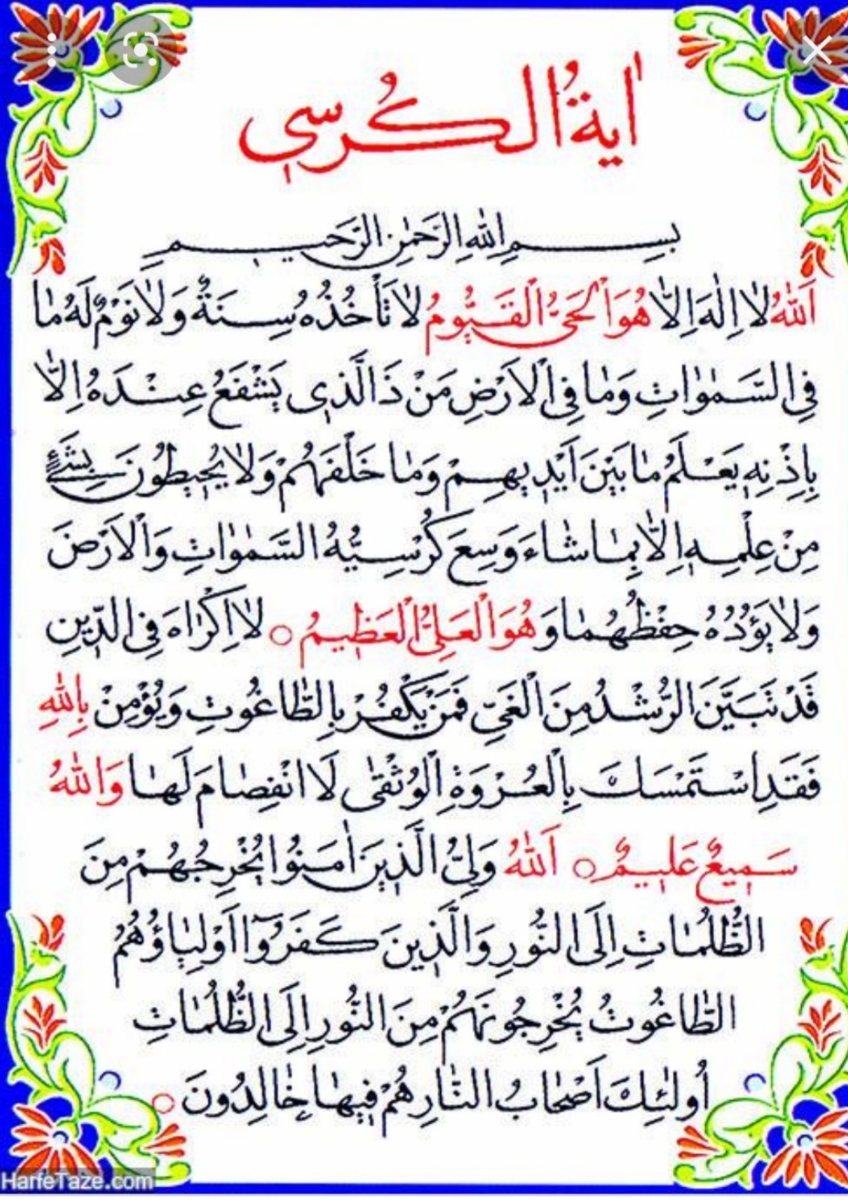 اٰيةُ الكُرسىِ
بِسمِ اللهِ الرَّحمٰنِ الرَّحيمِ
اَللهُ لا اِلٰهَ اِلاّٰ هُوَ الْحَىُّ الْقَيُّومُ لا تَأْخُذُهُ سِنَةٌ وَلا نَوْمٌ لَهُ مٰا
فِى السَّمٰوٰاتِ وَمٰا فِى الْاَرْضِ مَنْ ذَا الَّذى يَشْفَعُ عِنْدَهُ اِلاّٰ
بِاِذْنِهِ يَعْلَمُ مٰا بَيْنَ اَيْديهِمْ وَمٰا خَلْفَهُمْ وَلا يُحيطُونَ بِشَئٍ
مِنْ عِلْمِهِ اِلاّٰ بِمٰا شٰاءَ وَسِعَ كُرْسِيُّهُ السَّمٰوٰاتِ وَالْاَرْضَ
وَلا يَؤُدُهُ حِفْظُهُمٰا وَهُوَ الْعَلِىُّ الْعَظيمُ ○ لا اِكْرٰاهَ فِى الدّينِ
قَدْ تَبَيَّنَ الرُّشْدُ مِنَ الْغَىِّ فَمَنْ يَكْفُرْ بِالطّٰاغُوتِ وَيُؤْمِنْ بِاللهِ
فَقَدِ اسْتَمْسَكَ بِالْعُرْوَةِ الْوُثْقىٰ لَا انْفِصٰامَ لَهٰا وَاللهُ
سَميعٌ عَليمٌ ○ اَللهُ وَلِىُّ الَّذينَ اٰمَنُوا يُخْرِجُهُمْ مِنَ
الظُّلُمٰاتِ اِلَى النُّورِ وَالَّذينَ كَفَرُوٓا اَوْلِيٰاؤُهُمُ
الطّٰاغُوتُ يُخْرِجُونَهُمْ مِنَ النُّورِ اِلَى الظُّلُمٰاتِ
اُولٰئِكَ اَصْحٰابُ النّٰارِ هُمْ فيهٰا خٰالِدُونَ ○
HarfeTaze.com